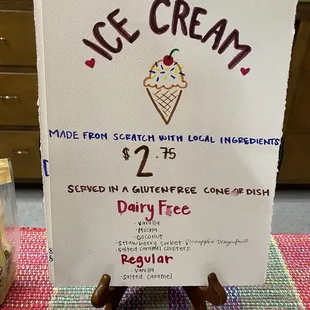 ICE CREAM
MADE FROM SCRATCH WITH LOCAL INGREDIENTS
$2.75
SERVED IN A GLUTENFREE CONE OR DISH
Dairy Free
-Vanilla
-Mocha
-Coconut
-Strawberry Sorbet Pineapple Dragonfruit
-Salted Caramel Clusters
Regular
-Vanilla
-Salted Caramel